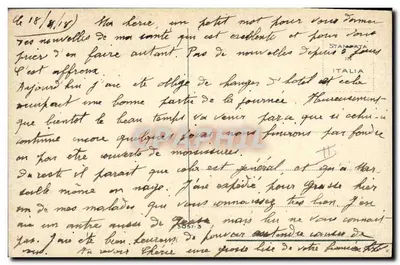 le 18/4/18) Ma chérie, un petit mot pour vous donner
des nouvelles de ma santé qui est excellente et pour vous
prier d'en faire autant. Pas de nouvelles depuis 3 jours
C'est affreux
STAMPATA
ITALIA
Aujourd'hui j'ai été obligé de changer d'hotel et cela
occupait une bonne partie de la journée. Heureusement
que bientot le beau temps va venir parce que si celui-ci
continue encore quelques jours nous finirons par fondre
ou par être couverts de moisissures.
Du reste il parait que cela est général et qu'à
même on nage. J'ai expédié pour Grasse hier
un de mes malades que vous connaissez très bien. J'en
ai un autre aussi de Grasse mais lui ne vous connait
pas. J'ai été bien heureux de pouvoir
5057-3
Au revoir Chérie une grosse bise de votre